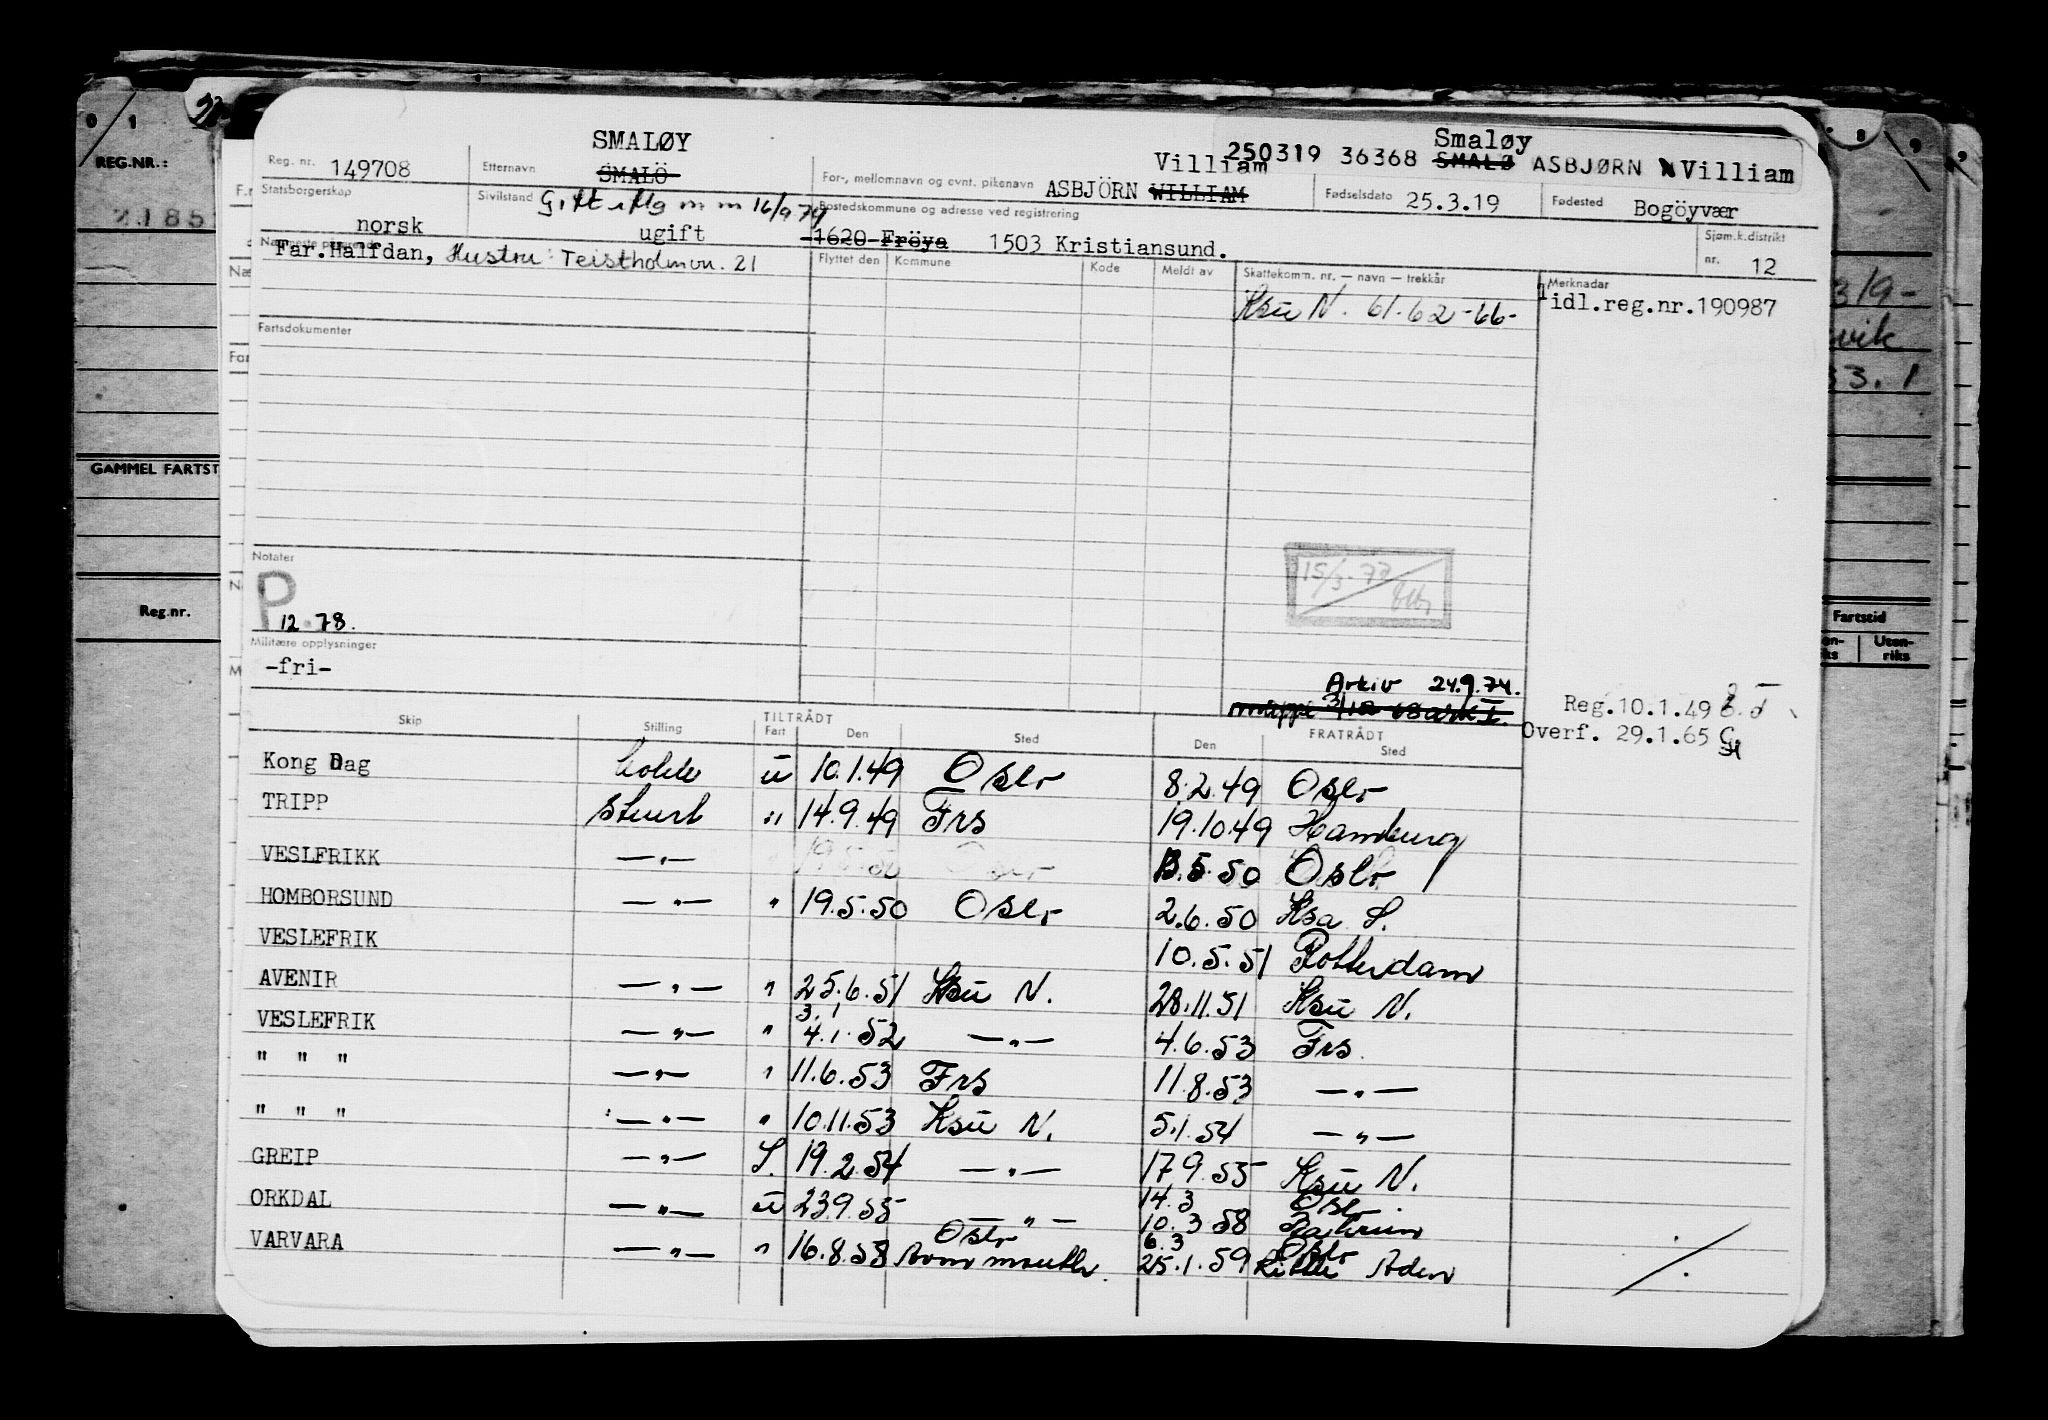 REG.NR.:
2185
GAMMEL FARTST
Reg.nr.
SMALØY
Reg. nr. 149708 Etternavn SMALÖ
For-, mellomnavn og evnt. pikenavn ASBJÖRN WILLIAM
Villiam
250319 36368 SMALØ ASBJØRN Villiam
Smaløy
Fødselsdato 25.3.19 Fødested Bogöyvær
Statsborgerskap norsk Sivilstand Gift iflg m m 16/9 74
ugift
Bostedskommune og adresse ved registrering
1620 Fröya 1503 Kristiansund.
Sjøm.k.distrikt nr. 12
Nærmeste pårørende
Far.Halfdan, Hustru: Teistholmvn. 21
Flyttet den Kommune Kode Meldt av Skattekomm. nr. — navn — trekkår Merknadar
Ksu N. 61-62-66- idl.reg.nr.190987
Fartsdokumenter
319-
vik
33.1
Notater
P
12.78.
15/3-77
Militære opplysninger
-fri-
Arkiv 24.9.74.
Reg.10.1.49
Overf. 29.1.65
Fartstid
Uten-
riks
Skip Stilling TILTRÅDT Fart Den Sted FRATRÅDT Den Sted
Kong Dag u 10.1.49 Oslo 8.2.49 Oslo
TRIPP Stuert " 14.9.49 Frs 19.10.49 Hamburg
VESLFRIKK —"— 13.5.50 Oslo
HOMBORSUND —"— " 19.5.50 Oslo 2.6.50 Ksa S.
VESLEFRIK 10.5.51 Rotterdam
AVENIR —"— " 25.6.51 Ksu N. 28.11.51 Ksu N.
3.1
VESLEFRIK —"— " 4.1.52 —"— 4.6.53 Frs
" " " —"— " 11.6.53 Frs 11.8.53 —"—
" " " —"— " 10.11.53 Ksu N. 5.1.54 —"—
GREIP —"— S. 19.2.54 —"— 17.9.55 Ksu N.
14.3 Oslo
ORKDAL —"— u 23.9.55 —"— 10.3.58
Oslo 6.3 Oslo
VARVARA —"— " 16.8.58 Avonmouth. 25.1.59 Little Aden